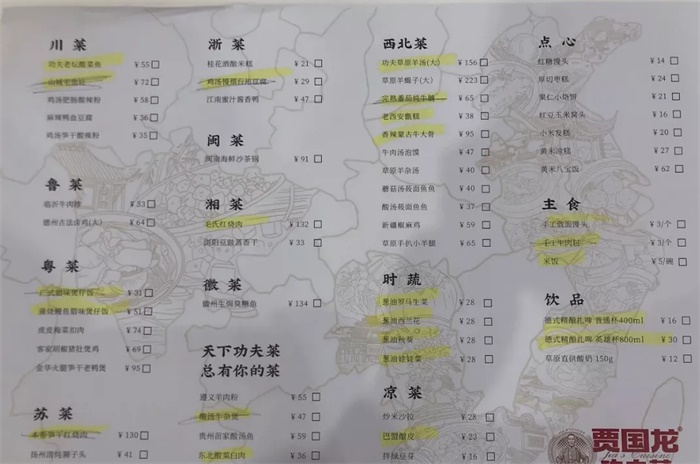 川菜
功夫老坛酸菜鱼 ¥55
¥72
鸡汤肥肠酸辣粉 ¥58
麻辣鸭血豆腐 ¥36
鸡汤笋干酸辣粉 ¥35
鲁菜
临沂牛肉糁 ¥53
德州古法卤鸡(大) ¥64
粤菜
广式腊味煲仔饭 ¥31
蒲烧鳗鱼腊味煲仔饭 ¥51
虎皮梅菜扣肉 ¥74
客家胡椒猪肚煲鸡 ¥69
金华火腿笋干老鸭煲 ¥95
苏菜
本帮笋干红烧肉 ¥130
扬州清炖狮子头 ¥41
浙菜
桂花酒酿米糕 ¥21
鸡汤慢煨百叶豆腐 ¥29
江南蜜汁酱香鸭 ¥47
闽菜
闽南海鲜沙茶锅 ¥91
湘菜
毛氏红烧肉 ¥132
浏阳豆豉蒸香干 ¥33
徽菜
徽州生焗臭鳜鱼 ¥134
天下功夫菜
总有你的菜
遵义羊肉粉 ¥55
酸汤牛杂煲 ¥47
贵州苗家酸汤鱼 ¥59
东北酸菜白肉 ¥36
西北菜
功夫草原羊汤(大) ¥156
草原羊蝎子(大) ¥223
完熟番茄炖牛腩 ¥65
老西安甑糕 ¥38
香辣蒙古牛大骨 ¥95
牛肉汤泡馍 ¥47
草原羊杂汤 ¥40
蘑菇汤莜面鱼鱼 ¥58
酸汤莜面鱼鱼 ¥37
新疆椒麻鸡 ¥59
草原手扒小羊腿 ¥65
时蔬
葱油罗马生菜 ¥28
葱油西兰花 ¥28
葱油秋葵 ¥28
葱油娃娃菜 ¥28
凉菜
炒米沙拉 ¥28
巴盟酿皮 ¥23
拌绿豆芽
点心
红糖馒头 ¥14
厚切枣糕 ¥24
果仁小烙饼 ¥21
红豆玉米窝头 ¥16
小米发糕 ¥20
黄米凉糕 ¥27
黄米八宝饭 ¥62
主食
手工戗面馒头 ¥3/个
手工牛肉包 ¥7/个
米饭 ¥5/碗
饮品
德式精酿扎啤 普通杯400ml ¥16
德式精酿扎啤 英雄杯800ml ¥30
草原直供酸奶 150g ¥12
贾国龙
Jia's Cuisine